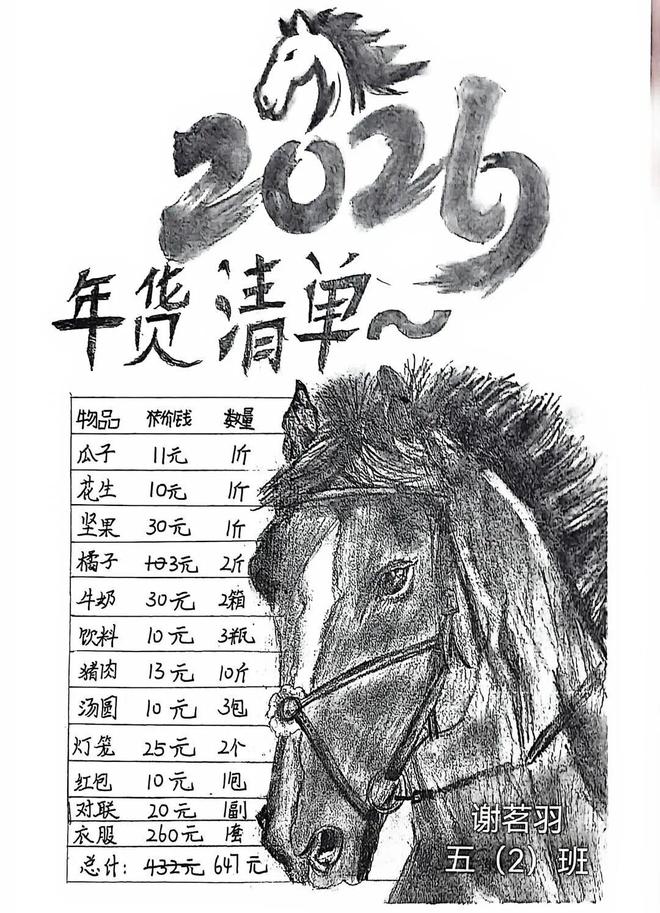 2026
年货清单~
物品 价钱 数量
瓜子 11元 1斤
花生 10元 1斤
坚果 30元 1斤
橘子 3元 2斤
牛奶 30元 2箱
饮料 10元 3瓶
猪肉 13元 10斤
汤圆 10元 3包
灯笼 25元 2个
红包 10元 1包
对联 20元 1副
衣服 260元 1套
总计: 432元 647元
谢茗羽
五(2)班